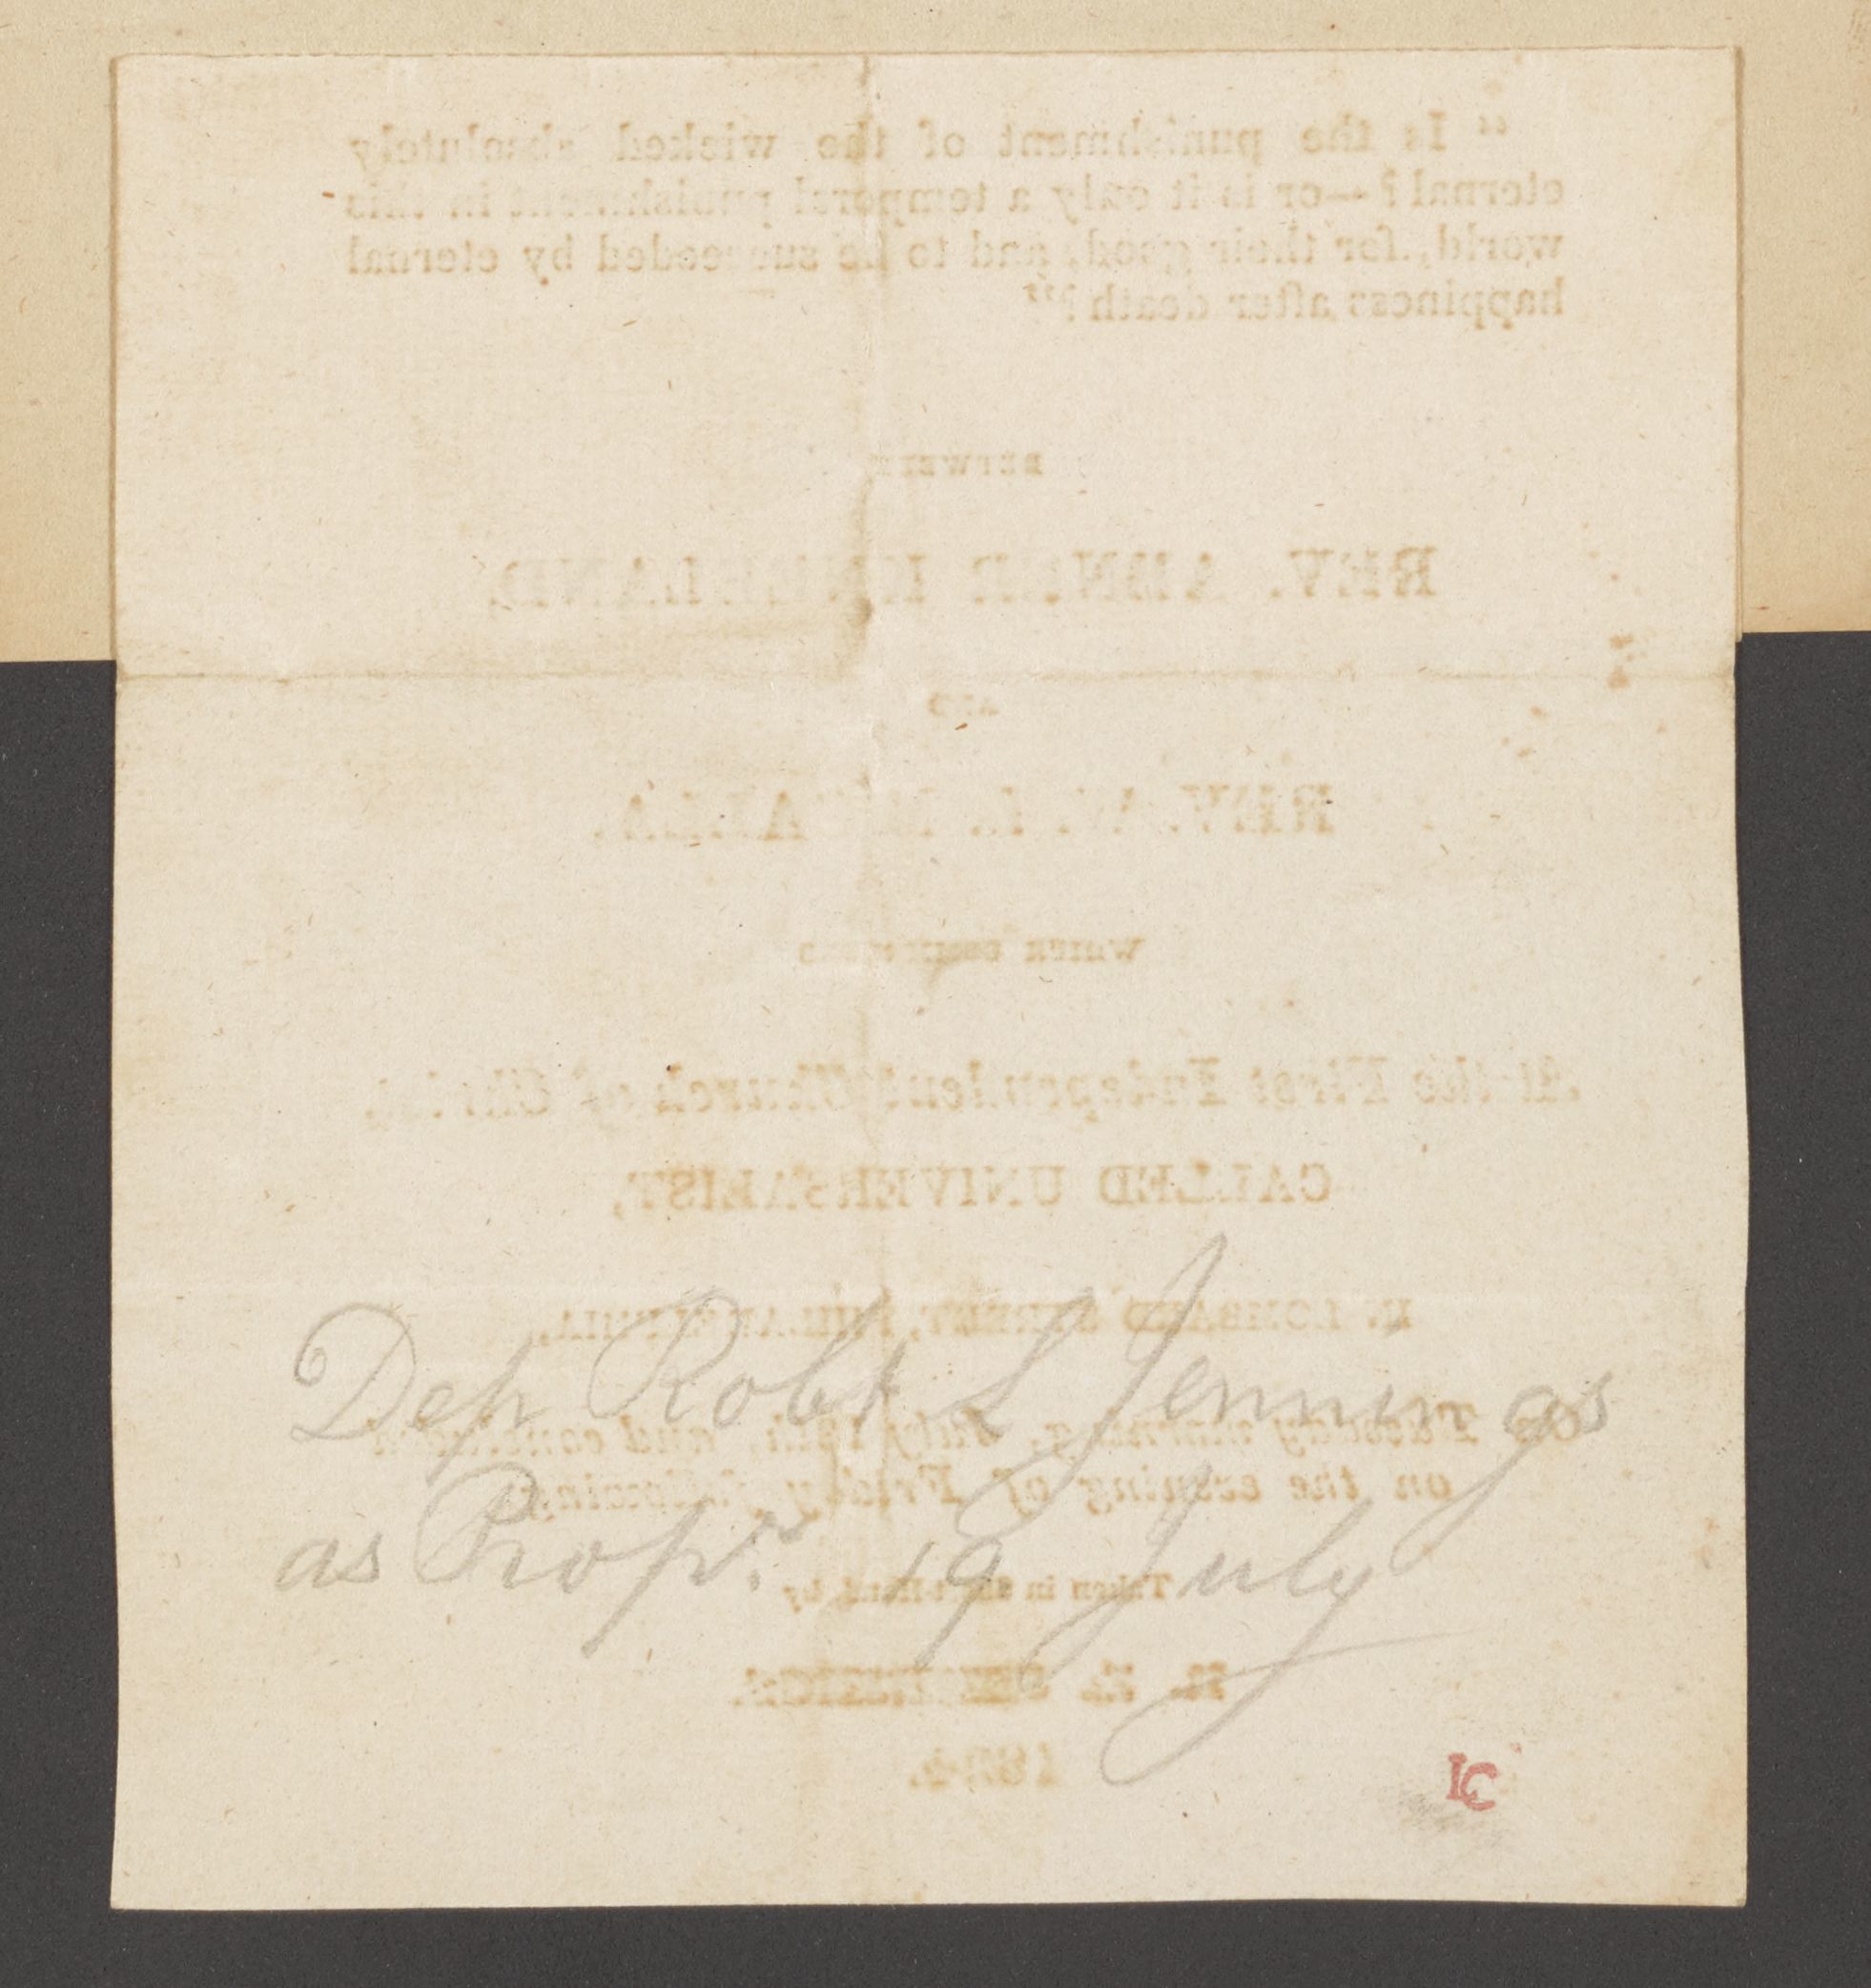 “ Is the punishment of the wicked absolutely
eternal?—or is it only a temporal punishment in this
world, for their good, and to be succeeded by eternal
happiness after death?”
BETWEEN
REV. ABNER KNEELAND
AND
REV. W. L. M'CALLA,
WHICH COMMENCED
At the First Independent Church of Christ,
CALLED UNIVERSALIST,
IN LOMBARD STREET, PHILADELPHIA,
Dep Robt L Jennings
On Tuesday morning, July 13th, and continued
on the evening of Friday following.
as Propr. 19 July
Taken in Short-Hand, by
1824.
LC